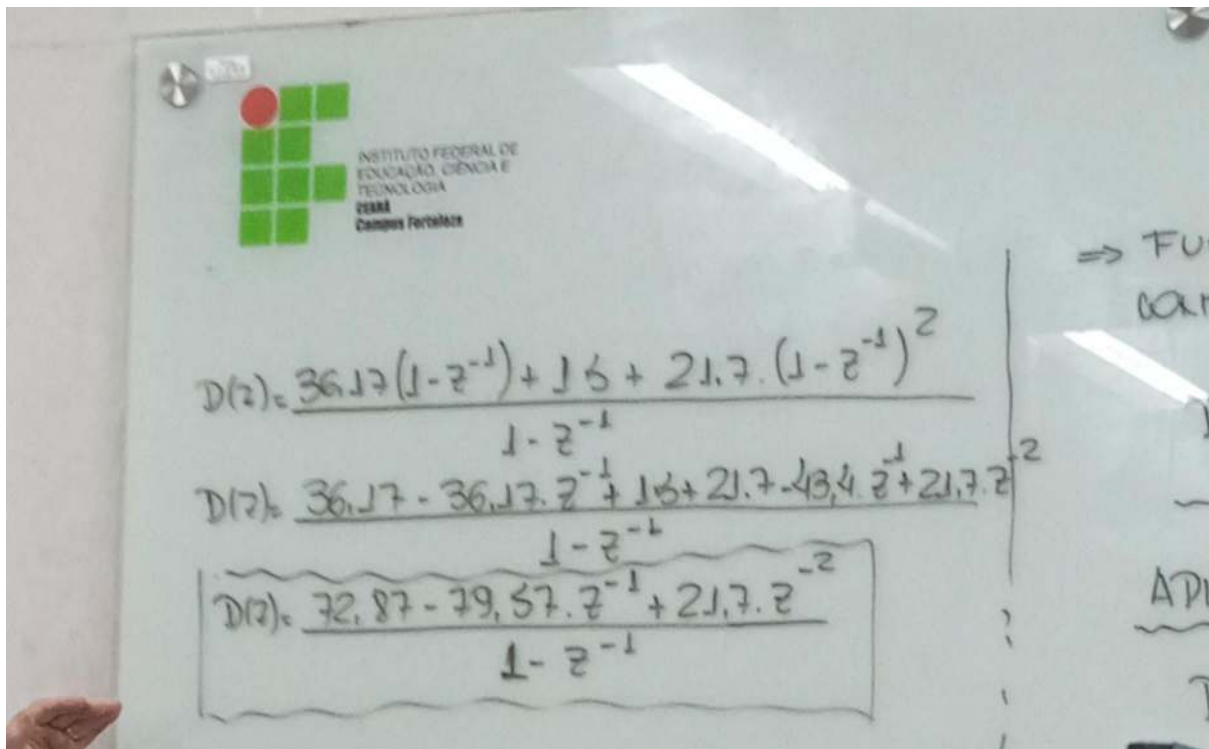 INSTITUTO FEDERAL DE
EDUCAÇÃO, CIÊNCIA E
TECNOLOGIA
CEARÁ
Campus Fortaleza
=> FU
D(z) = 36,17(1 - z^-1) + 15 + 21,7 . (1 - z^-1)^2
1 - z^-1
D(z) = 36,17 - 36,17 . z^-1 + 15 + 21,7 - 43,4 . z^-1 + 21,7 . z^-2
1 - z^-1
D(z) = 72,87 - 79,57 . z^-1 + 21,7 . z^-2
1 - z^-1